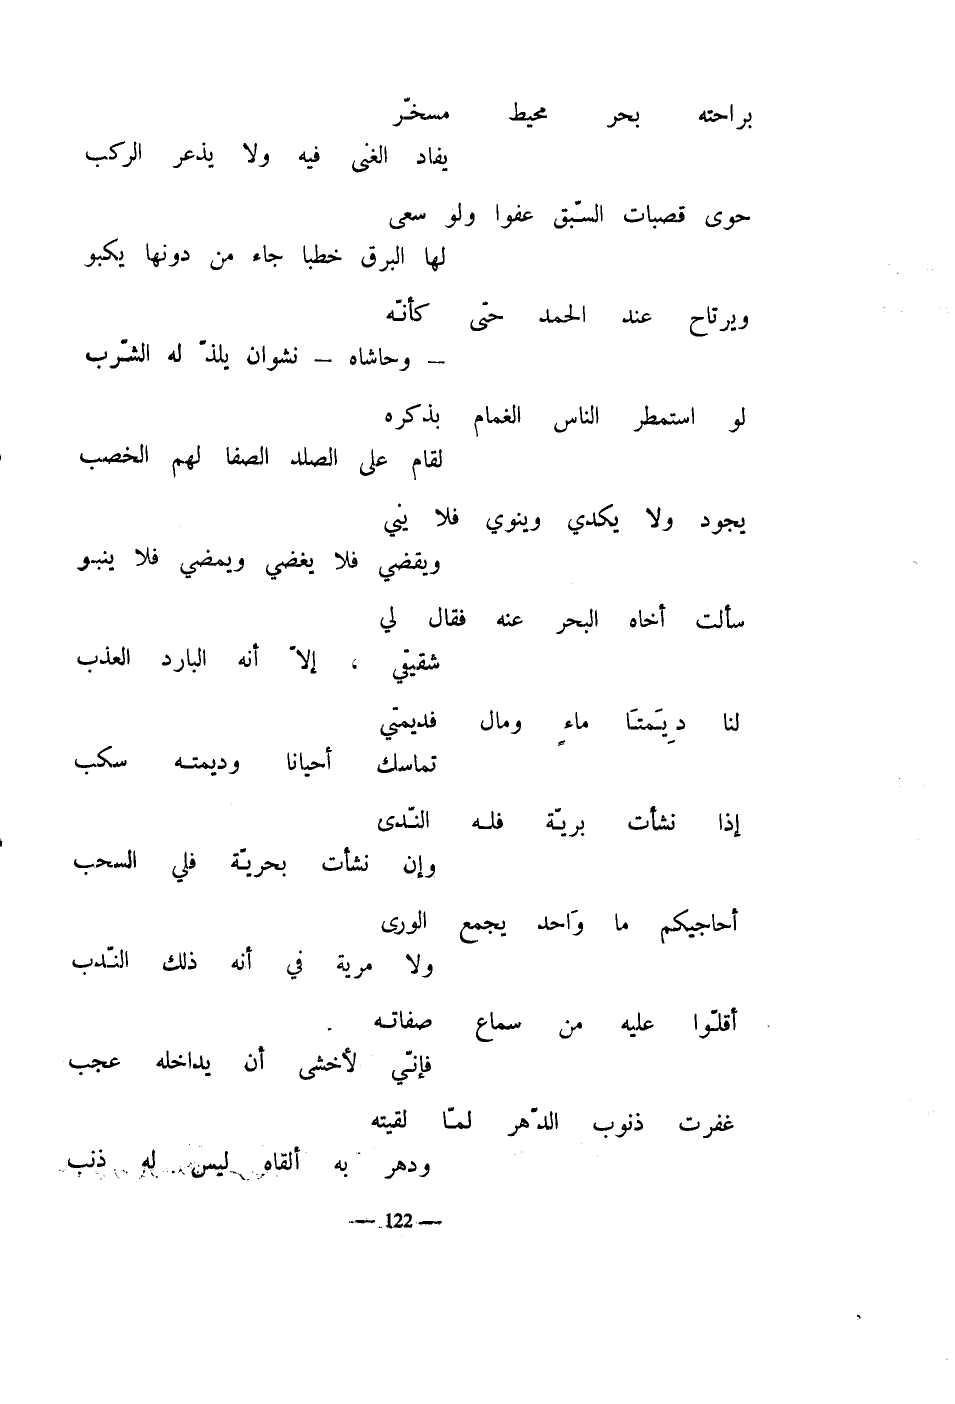 براحته بحر محيط مسخّر
يفاد الغنى فيه ولا يذعر الركب
حوى قصبات السّبق عفوا ولو سعى
لها البرق خطبا جاء من دونها يكبو
ويرتاح عند الحمد حتّى كأنّه
— وحاشاه — نشوان يلذّ له الشّرب
لو استمطر الناس الغمام بذكره
لقام على الصلد الصفا لهم الخصب
يجود ولا يكدي وينوي فلا يني
ويقضي فلا يغضي ويمضي فلا ينبو
سألت أخاه البحر عنه فقال لي
شقيقي ، إلاّ أنه البارد العذب
لنا دِيَمتَا ماءٍ ومال فديمتي
تماسك أحيانا وديمته سكب
إذا نشأت بريّة فله النّدى
وإن نشأت بحريّة فلي السحب
أحاجيكم ما وَاحد يجمع الورى
ولا مرية في أنه ذلك النّدب
أقلّوا عليه من سماع صفاته .
فإنّي لأخشى أن يداخله عجب
غفرت ذنوب الدّهر لمّا لقيته
ودهر به ألقاه ليس له ذنب
— 122 —